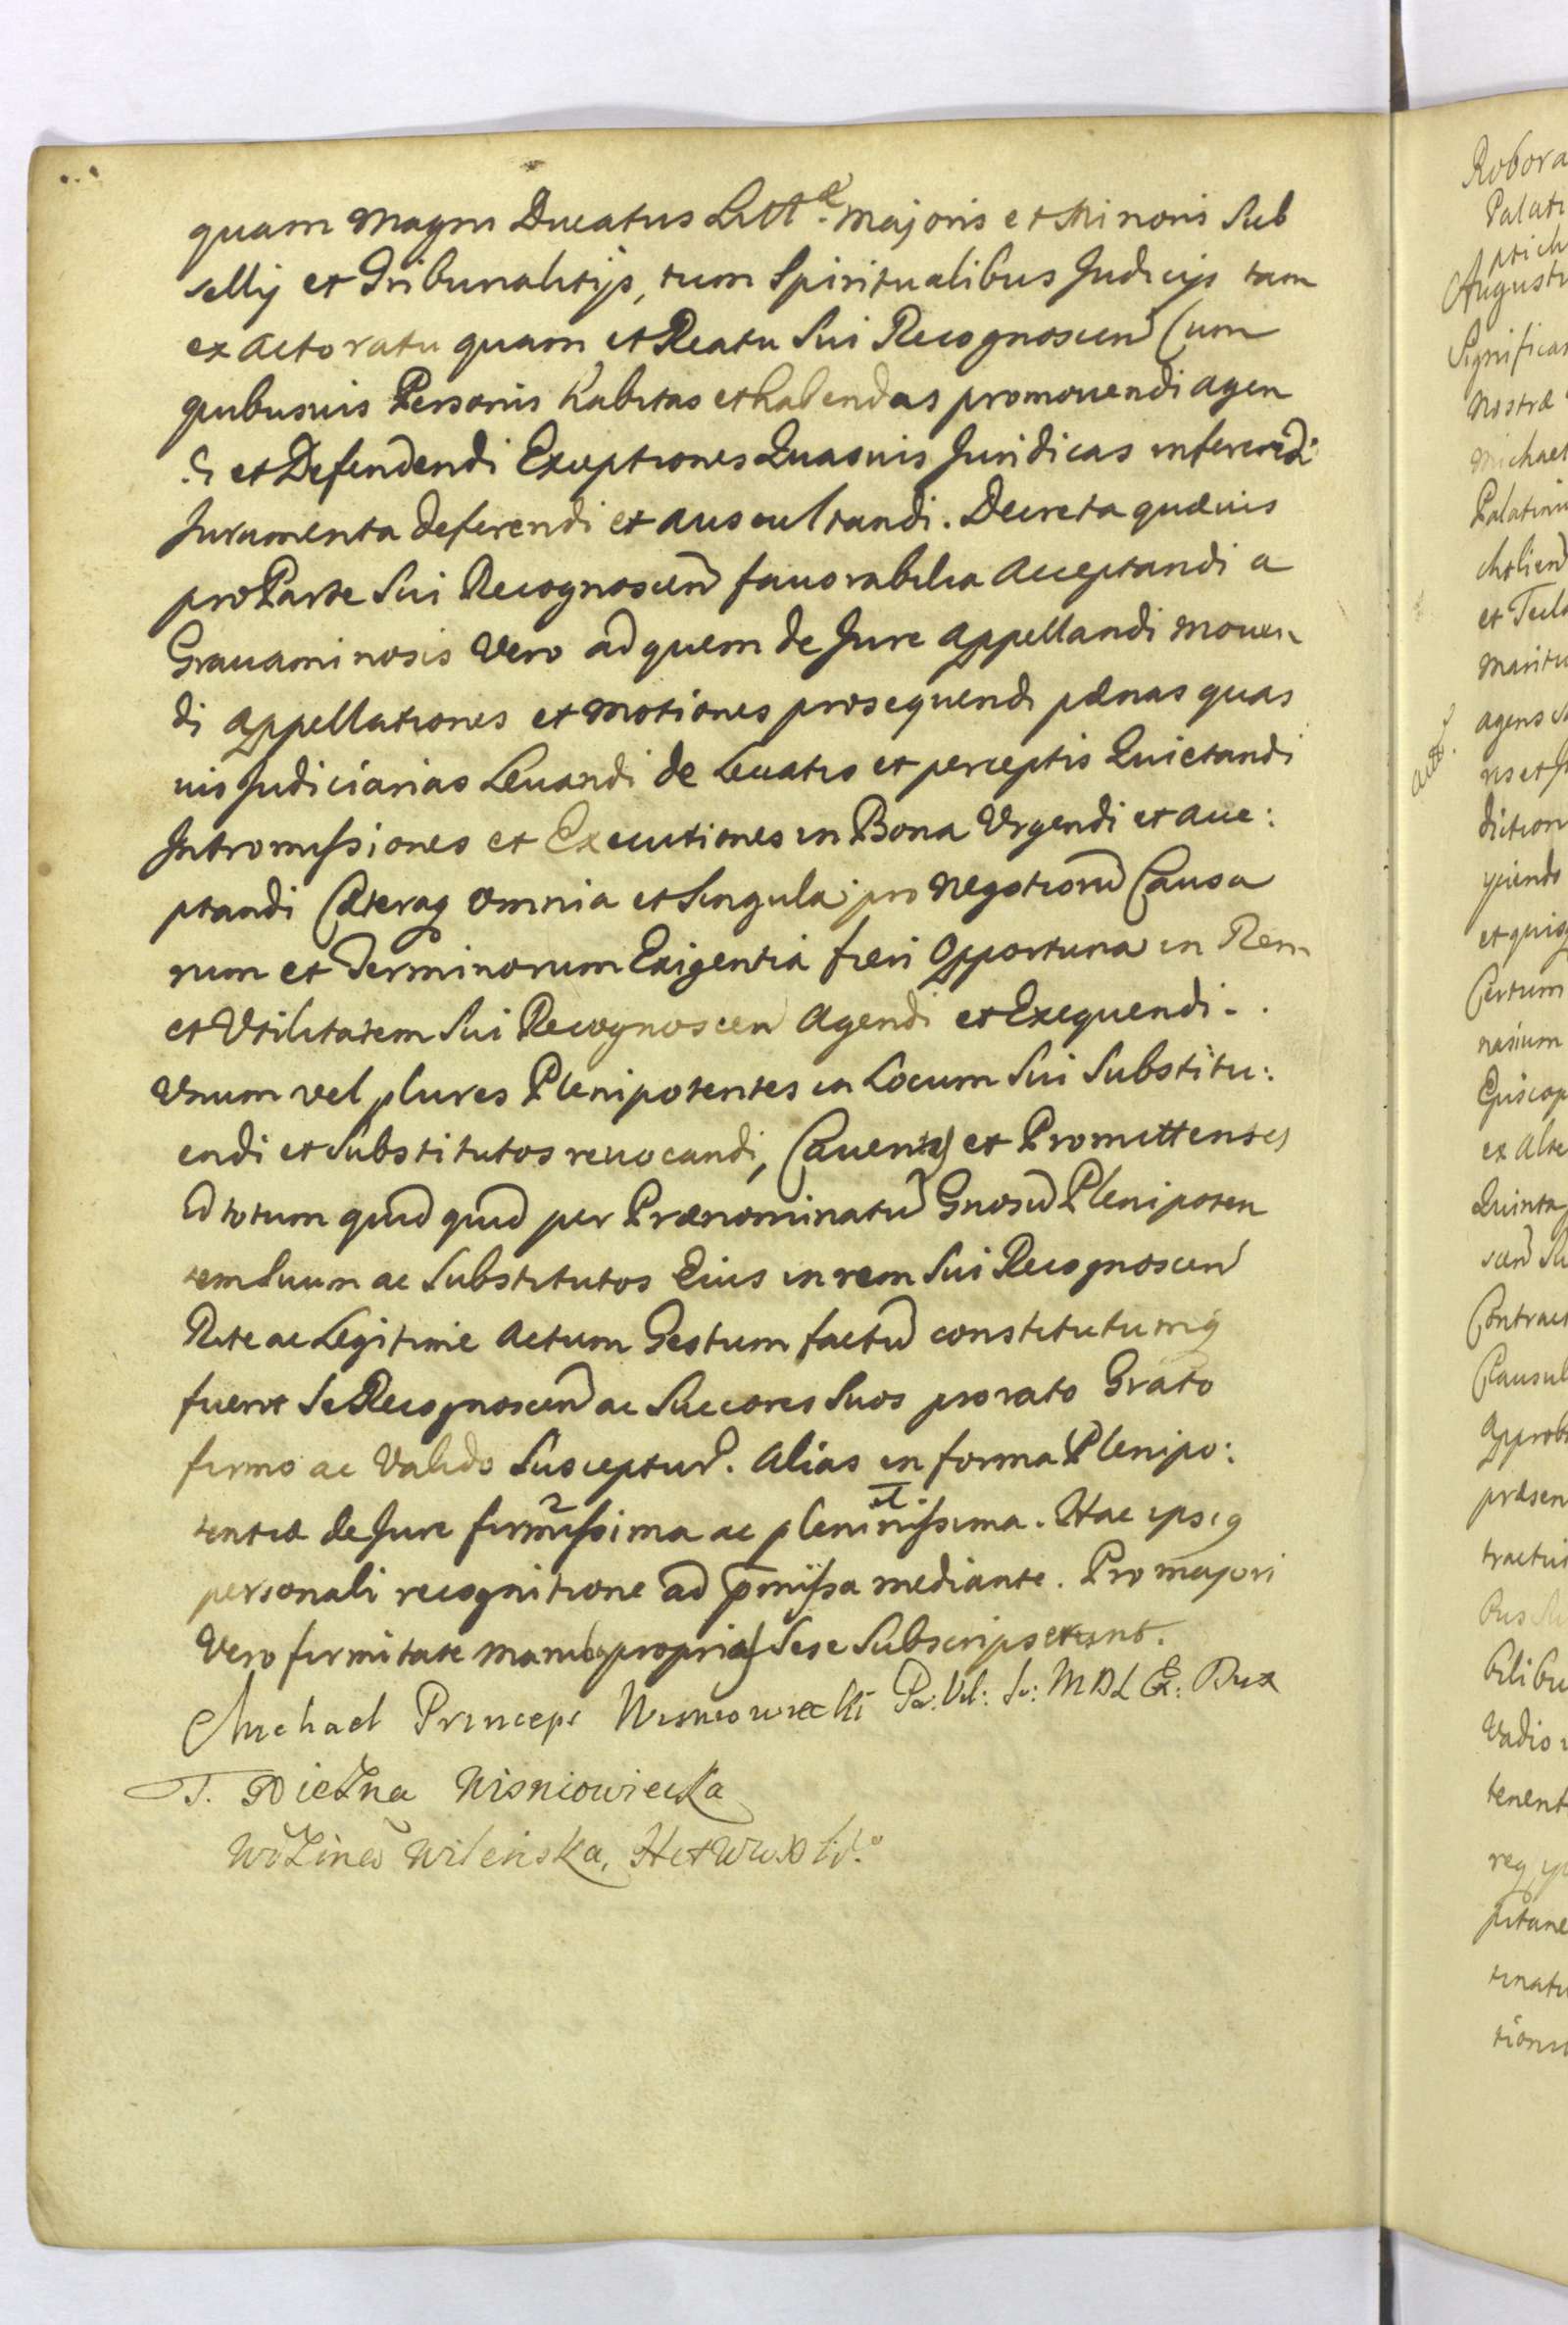 quam Magni Ducatus Littæ. Majoris et Minoris Sub
sellij et Tribunalitijs, tum Spiritualibus Judicijs tam
ex Actoratu quam et Reatu Sui Recognoscen Cum
quibusuis Personis habitas et habendas promouendi agen
di et Defendendi Exceptiones Quasuis Juridicas inferendi
Juramenta deferendi et auscultandi. Decreta quæuis
pro Parte Sui Recognoscen fauorabilia Acceptandi a
Grauaminosis Vero ad quem de Jure Appellandi mouen
di Appellationes et motiones prosequendi pænas quas
uis Judiciarias Leuandi de Leuatis et perceptis Quietandi
Intromissiones et Executiones in Bona Vrgendi et acce:
ptandi Cæteraq omnia et Singula pro Negotiorũ Causa
rum et Terminorum Exigentia fieri Opportuna in Rem
et Vtilitatem Sui Recognoscen Agendi et Exequendi. .
Vnum vel plures Plenipotentes in Locum Sui Substitu:
endi et Substitutos reuocandi, Cauentes et Promittentes
Id totum quid quid per Prænominatũ Gnosũ Plenipoten
tem Suum ac Substitutos Eius in rem Sui Recognoscen
Rite ac Legitimè Actum Gestum factũ constitutumq
fuerit Se Recognoscen ac Succores Suos pro rato Grato
firmo ac Valido Susceptur. Alias in forma Plenipo:
tentiæ de Jure firmissima ac plenissima. Hac ipsiq
personali recognitione ad p̄missa mediante. Pro majori
Vero firmitate manibq proprijs Sese Subscripserunt.
Michael Princeps Wisniowiecki Pa: Vil: Su: MDL Ex: Dux
T. XieZna Wisniowiecka
WoZina Wilenska, HetWWXLit.
Robora
Palati
Augusti
Significa
Nostræ
Michael
Palatinu
et
Maritu
agens
diction
et quiq
Certum
nasium
Episcop
ex Alte
Quinta
Contract
Clausul
Approb
præsen
tractu
Vadio
tenent